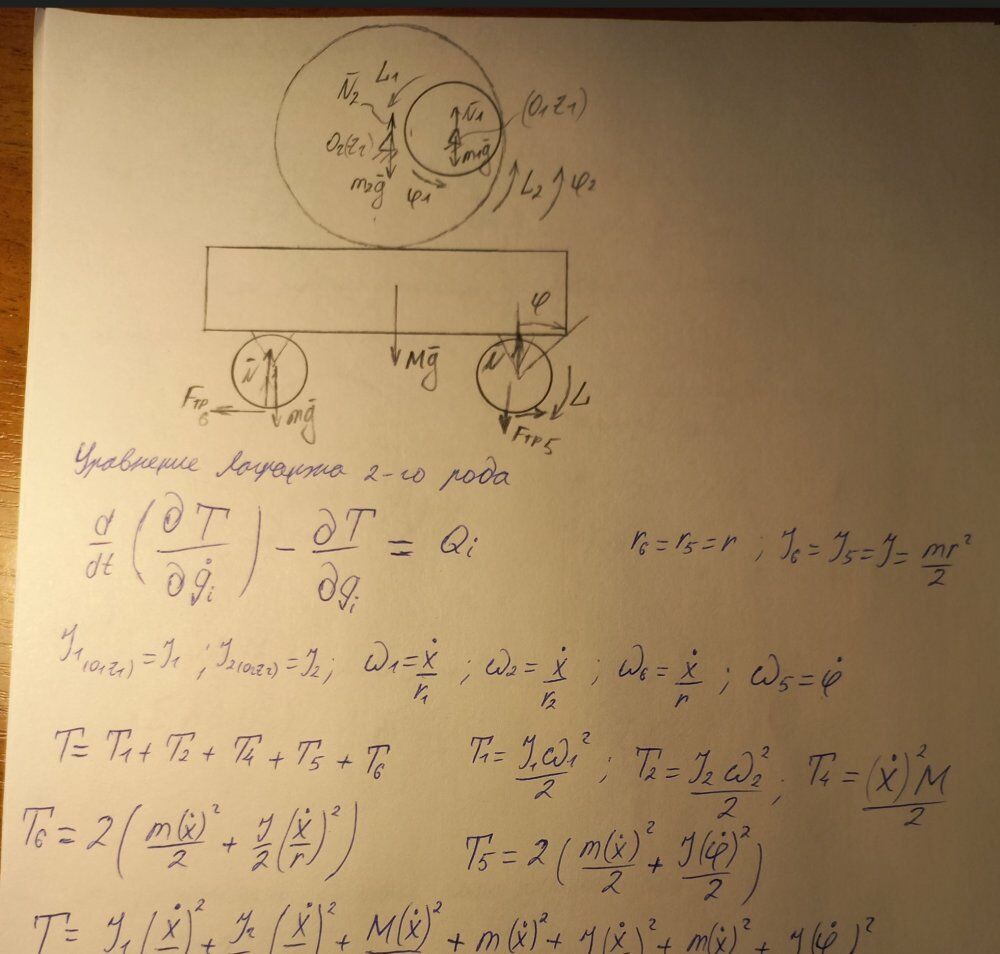 L₁
N̄₂ N̄₁ (O₁Z₁)
O₂(Z₂) m₁ḡ
m₂ḡ φ₁ L₂ φ₂
φ
N̄ Mḡ N̄ L
Fтр6 mḡ Fтр5
Уравнение Лагранжа 2-го рода
d/dt (∂T/∂q̇ᵢ) - ∂T/∂qᵢ = Qᵢ r₆=r₅=r ; J₆=J₅=J=mr²/2
J₁(O₁Z₁)=J₁ ; J₂(O₂Z₂)=J₂ ; ω₁=ẋ/r₁ ; ω₂=ẋ/r₂ ; ω₆=ẋ/r ; ω₅=φ̇
T= T₁+T₂+T₄+T₅+T₆ T₁=J₁ω₁²/2 ; T₂=J₂ω₂²/2 ; T₄=(ẋ)²M/2
T₆=2(m(ẋ)²/2+J/2(ẋ/r)²) T₅=2(m(ẋ)²/2+J(φ̇)²/2)
T= J₁(ẋ)²+J₂(ẋ)²+M(ẋ)²+m(ẋ)²+J(ẋ)²+m(ẋ)²+J(φ̇)²